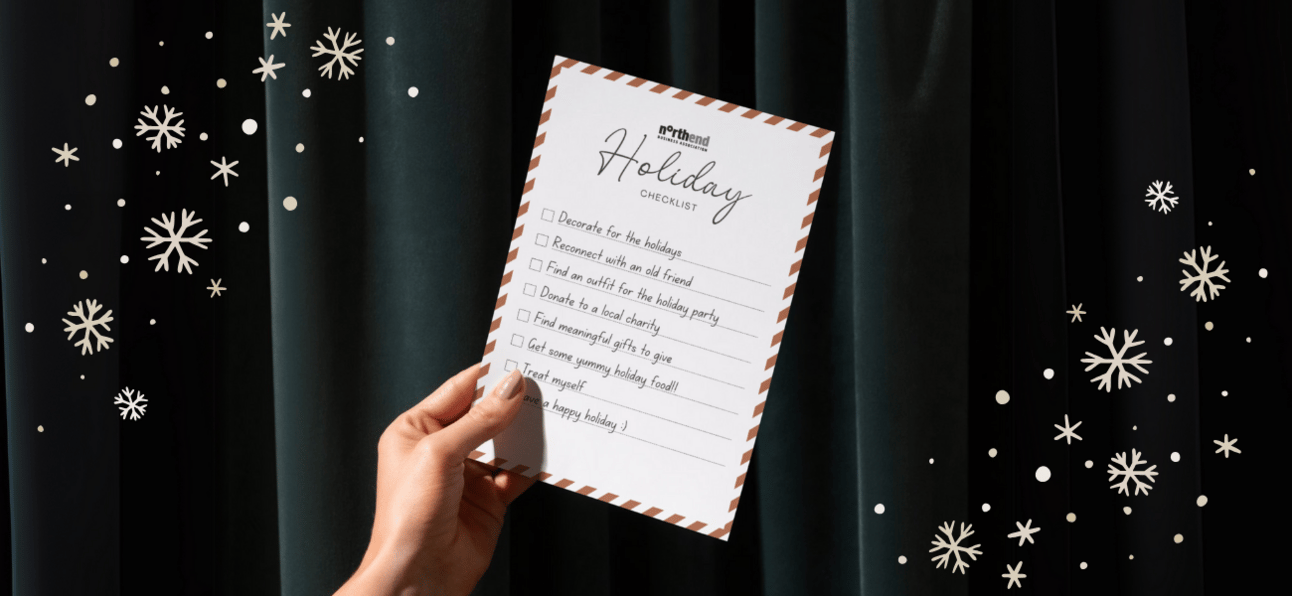 northend
BUSINESS ASSOCIATION
Holiday
CHECKLIST
Decorate for the holidays
Reconnect with an old friend
Find an outfit for the holiday party
Donate to a local charity
Find meaningful gifts to give
Get some yummy holiday food!!
Treat myself
ave a happy holiday :)